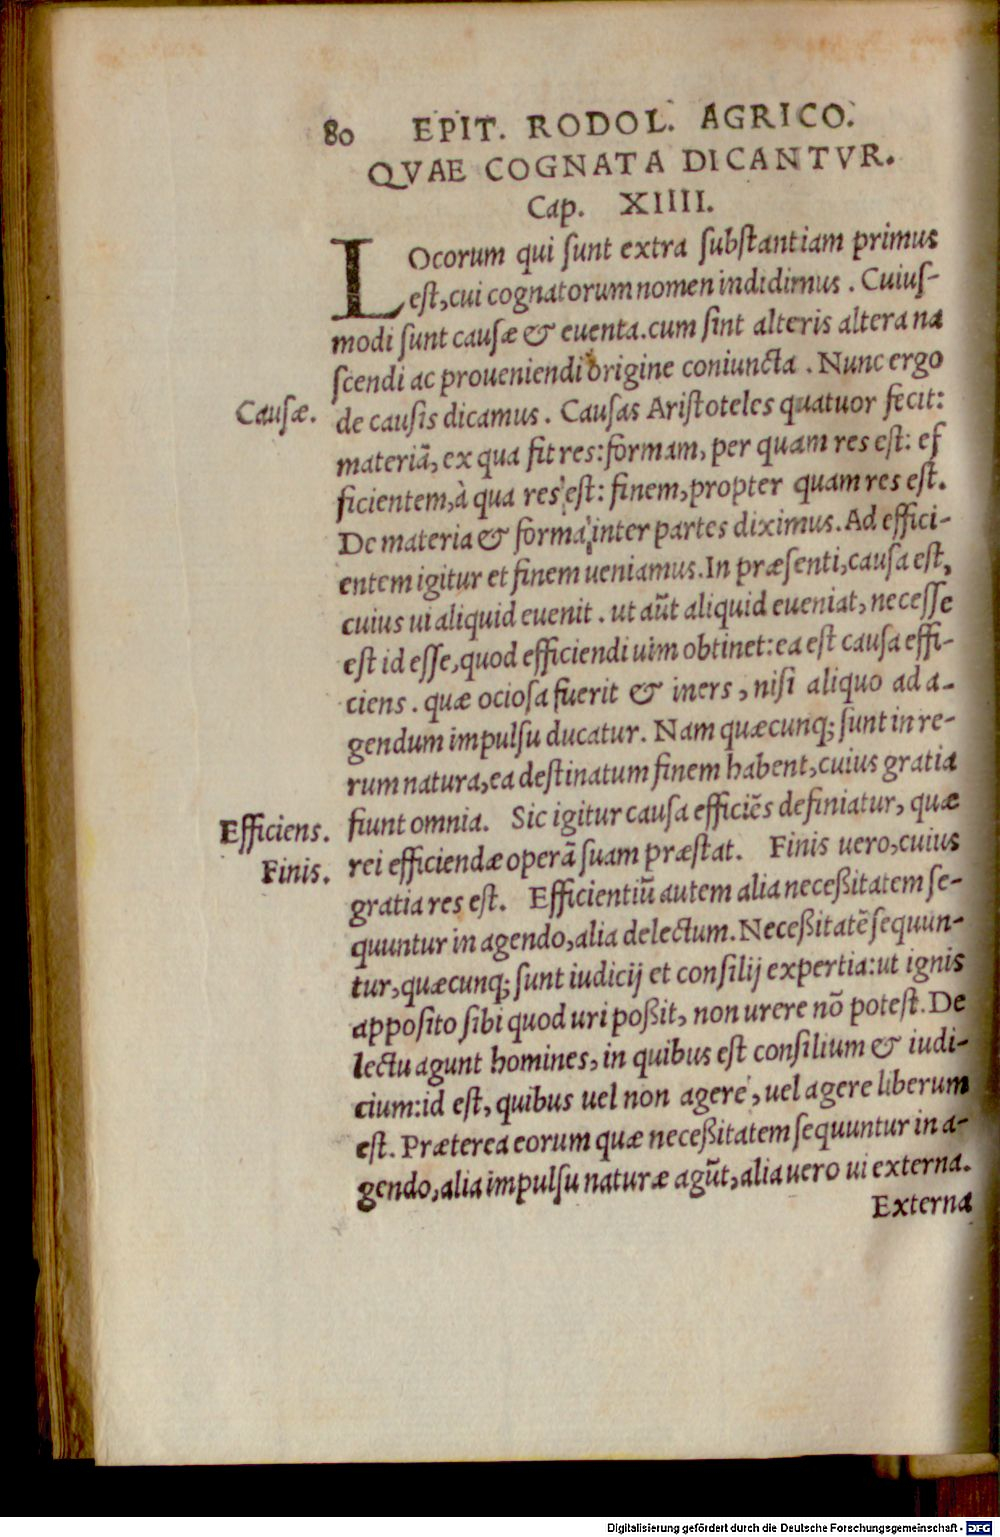 80 EPIT. RODOL. AGRICO.
QVAE COGNATA DICANTVR.
Cap. XIIII.
LOcorum qui ſunt extra ſubſtantiam primus
eſt, cui cognatorum nomen indidimus. Cuiuſ-
modi ſunt cauſæ & euenta. cum ſint alteris altera na
ſcendi ac proueniendi origine coniuncta. Nunc ergo
Cauſæ. de cauſis dicamus. Cauſas Ariſtoteles quatuor fecit:
materiã, ex qua fit res: formam, per quam res eſt: ef
ficientem, à qua res eſt: finem, propter quam res eſt.
De materia & forma inter partes diximus. Ad effici-
entem igitur et finem ueniamus. In præſenti, cauſa eſt,
cuius ui aliquid euenit. ut aũt aliquid eueniat, neceſſe
eſt id eſſe, quod efficiendi uim obtinet: ea eſt cauſa effi-
ciens. quæ ocioſa fuerit & iners, niſi aliquo ad a-
gendum impulſu ducatur. Nam quæcunq; ſunt in re-
rum natura, ea deſtinatum finem habent, cuius gratia
Efficiens. fiunt omnia. Sic igitur cauſa efficiẽs definiatur, quæ
Finis. rei efficiendæ operã ſuam præſtat. Finis uero, cuius
gratia res eſt. Efficientiũ autem alia neceßitatem ſe-
quuntur in agendo, alia delectum. Neceßitatẽ ſequun-
tur, quæcunq; ſunt iudicij et conſilij expertia: ut ignis
appoſito ſibi quod uri poßit, non urere nõ poteſt. De
lectu agunt homines, in quibus eſt conſilium & iudi-
cium: id eſt, quibus uel non agere, uel agere liberum
eſt. Præterea eorum quæ neceßitatem ſequuntur in a-
gendo, alia impulſu naturæ agũt, alia uero ui externa.
Externa
Digitalisierung gefördert durch die Deutsche Forschungsgemeinschaft - DFG